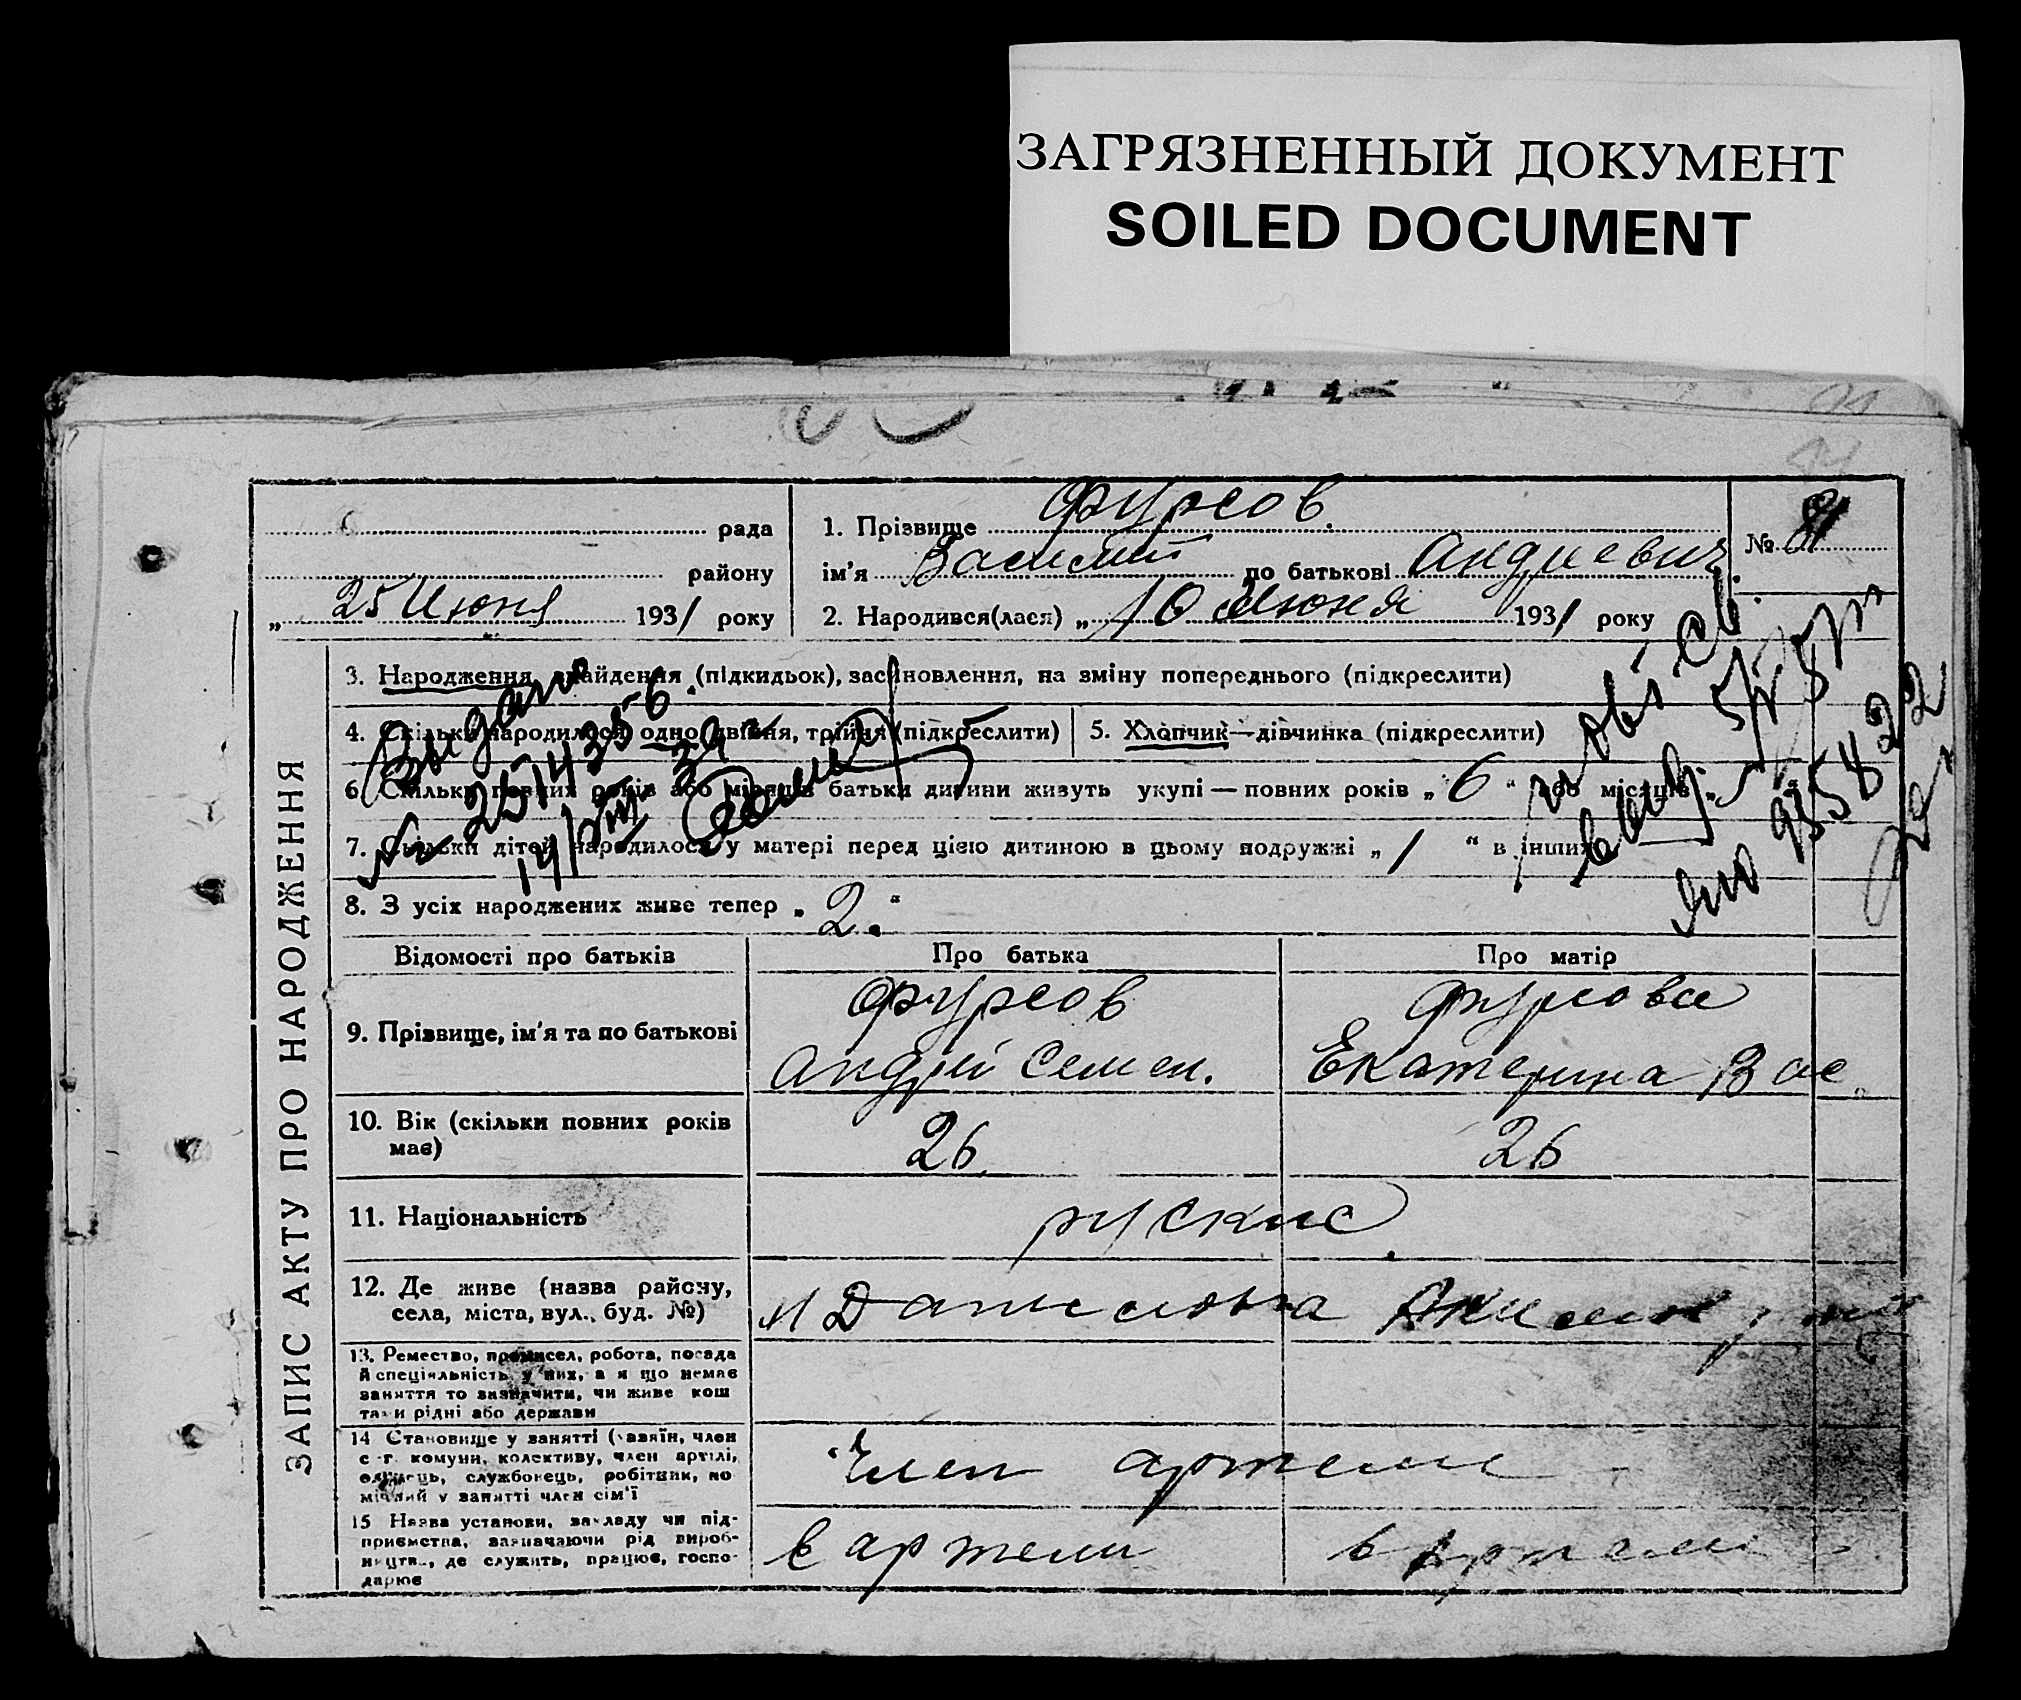 ЗАГРЯЗНЕННЫЙ ДОКУМЕНТ
SOILED DOCUMENT
рада
району
„ 25 Июня 1931 року
1. Прізвище Фурсов.
ім'я Василий по батькові Андреевич
2. Народився(лася) „ 10 Июня 1931 року
№ 81
ЗАПИС АКТУ ПРО НАРОДЖЕННЯ
3. Народження, знайдення (підкидьок), засиновлення, на зміну попереднього (підкреслити)
4. Скільки народилося: одно, двійня, трійня (підкреслити)
5. Хлопчик—дівчинка (підкреслити)
6. Скільки повних років або місяців батьки дитини живуть укупі — повних років „ 6 “ або місяців „
7. Скільки дітей народилося у матері перед цією дитиною в цьому подружжі „ 1 “ в інших
8. З усіх народжених живе тепер „ 2. “
Выдано
№ 257435-6.
14/VIII 39
повт. св.
Відомості про батьків
Про батька
Про матір
9. Прізвище, ім'я та по батькові
Фурсов
Андрій Семен.
Фурсова
Екатерина Вас.
10. Вік (скільки повних років має)
26
26
11. Національність
руские
12. Де живе (назва району, села, міста, вул., буд. №)
Даниловка
13. Ремество, промисел, робота, посада
й спеціяльність у них, а я що немає
заняття то зазначити, чи живе кош
тами рідні або держави
14 Становище у занятті (хазяїн, член
с-г. комуни, колективу, член артілі,
одинець, службовець, робітник, по
мічний у занятті член сім'ї
Член артели
15 Назва установи, закладу чи під-
приємства, зазначаючи рід вироб-
ництв., де служить, працює, госпо-
дарює
в артели
в артели